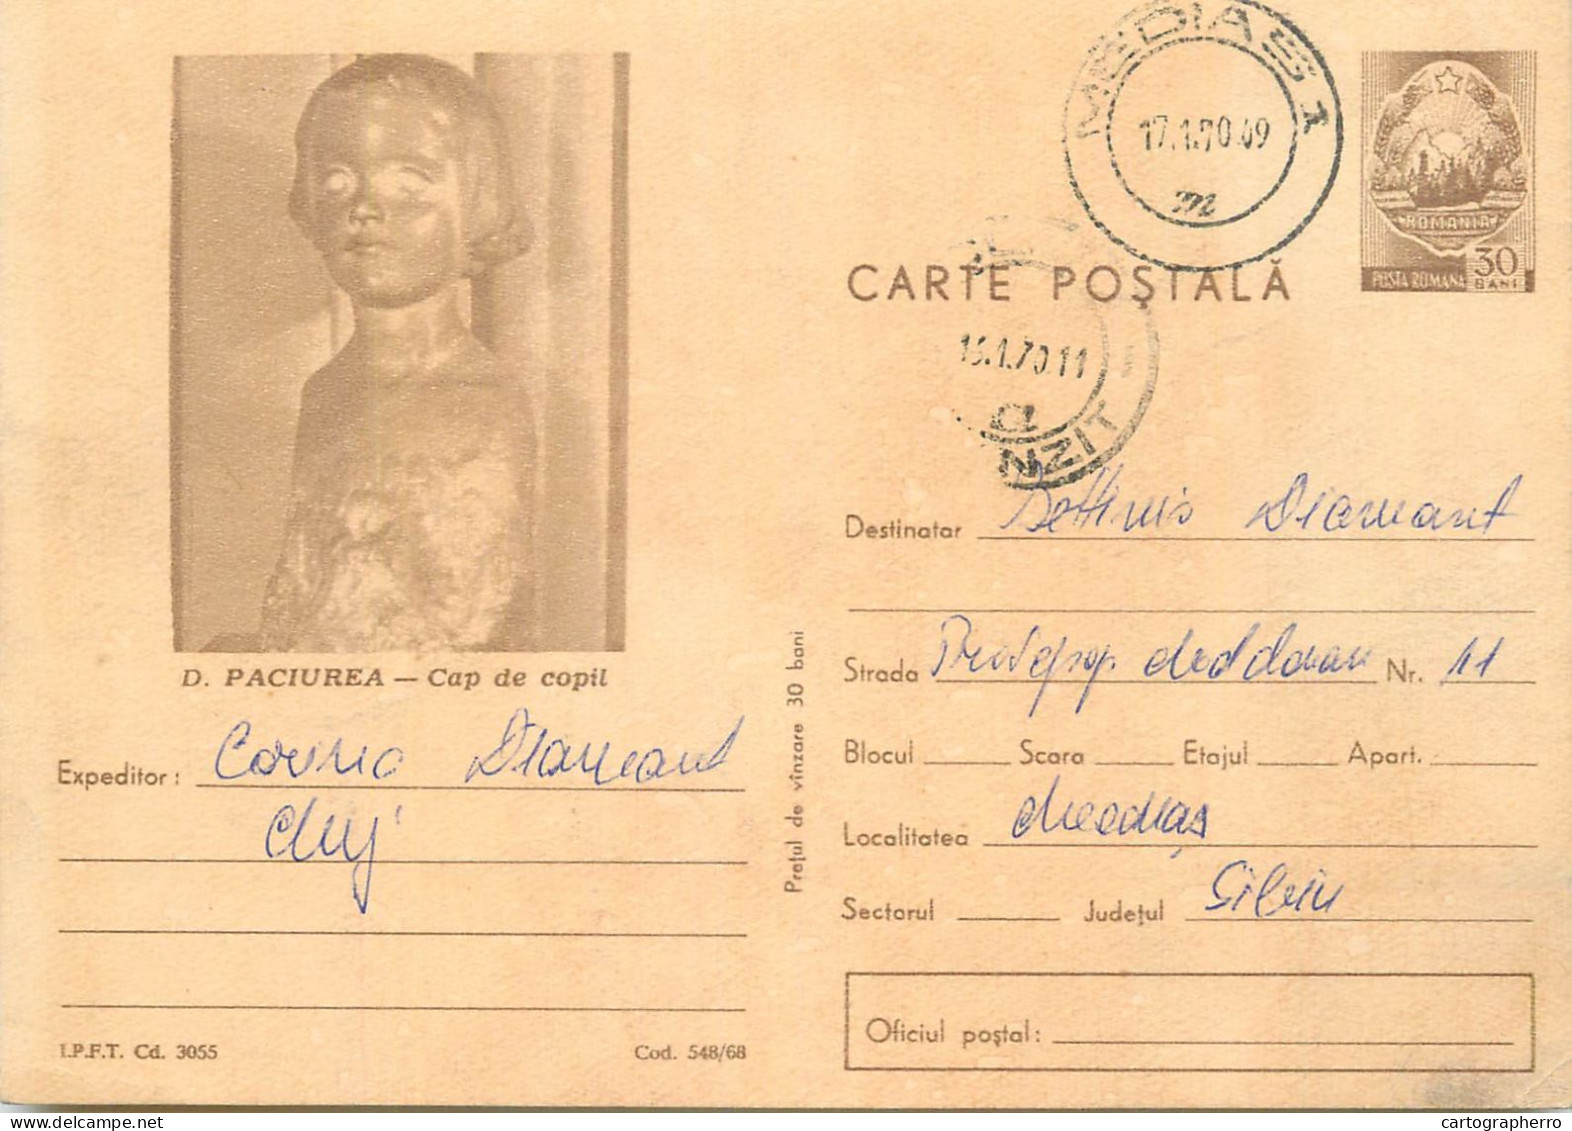 D. PACIUREA — Cap de copil
Expeditor: Corina Diamant
Cluj
I.P.F.T. Cd. 3055
Cod. 548/68
Prețul de vînzare 30 bani
MEDIAS 1
17.1.70.09
m
ROMANIA
POSTA ROMANA 30 BANI
CARTE POȘTALĂ
1.70.11
a
NZIT
Destinatar Diamant
Strada Nr. 11
Blocul Scara Etajul Apart.
Localitatea Mediaș
Sectorul Județul Sibiu
Oficiul poștal:
cartographerro